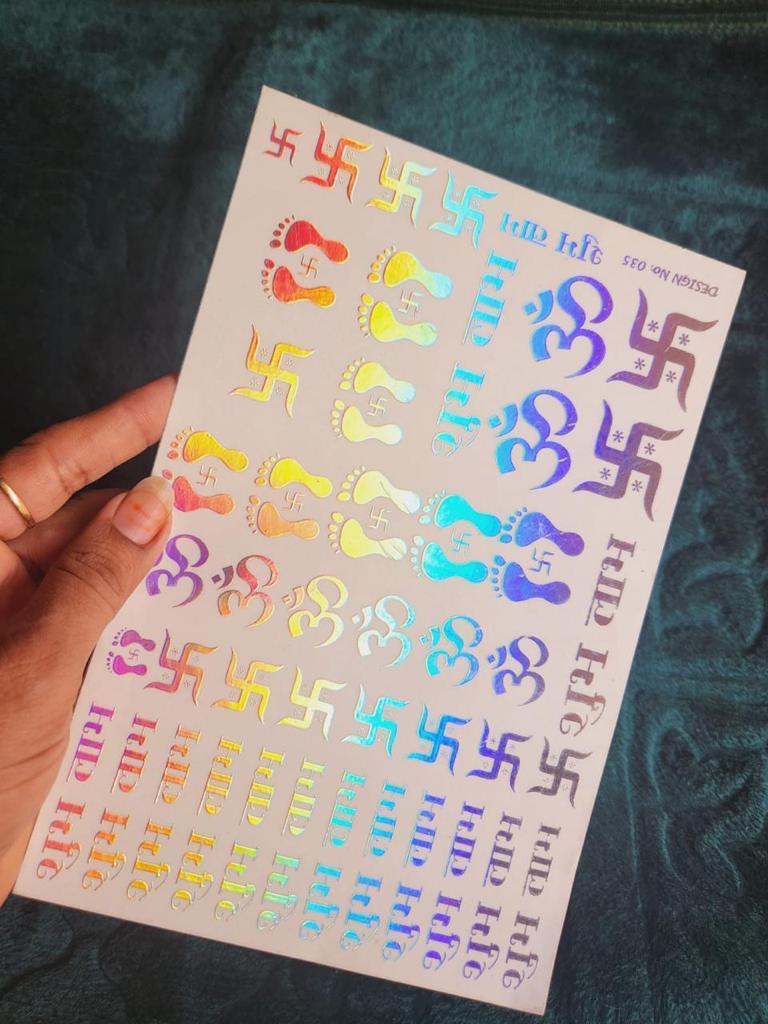 DESIGN No: 035
शुभ लाभ
ॐ
ॐ
शुभ लाभ
शुभ लाभ
ॐ
ॐ
ॐ
ॐ
ॐ
ॐ
शुभ लाभ
शुभ लाभ
शुभ लाभ
शुभ लाभ
शुभ लाभ
शुभ लाभ
शुभ लाभ
शुभ लाभ
शुभ लाभ
शुभ लाभ
शुभ लाभ
शुभ लाभ